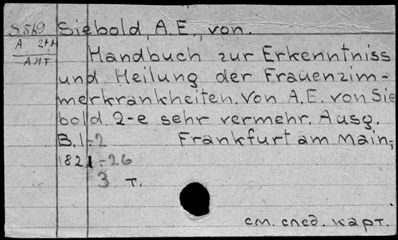 S 519 Siebold, A.E. von.
A 244
АНТ
Handbuch zur Erkenntniss
und Heilung der Frauenzim-
merkrankheiten. Von A.E. von Sie
bold 2-e sehr vermehr. Ausg.
B. 1-2 Frankfurt am Main,
1821-26
3 т.
см. след. карт.